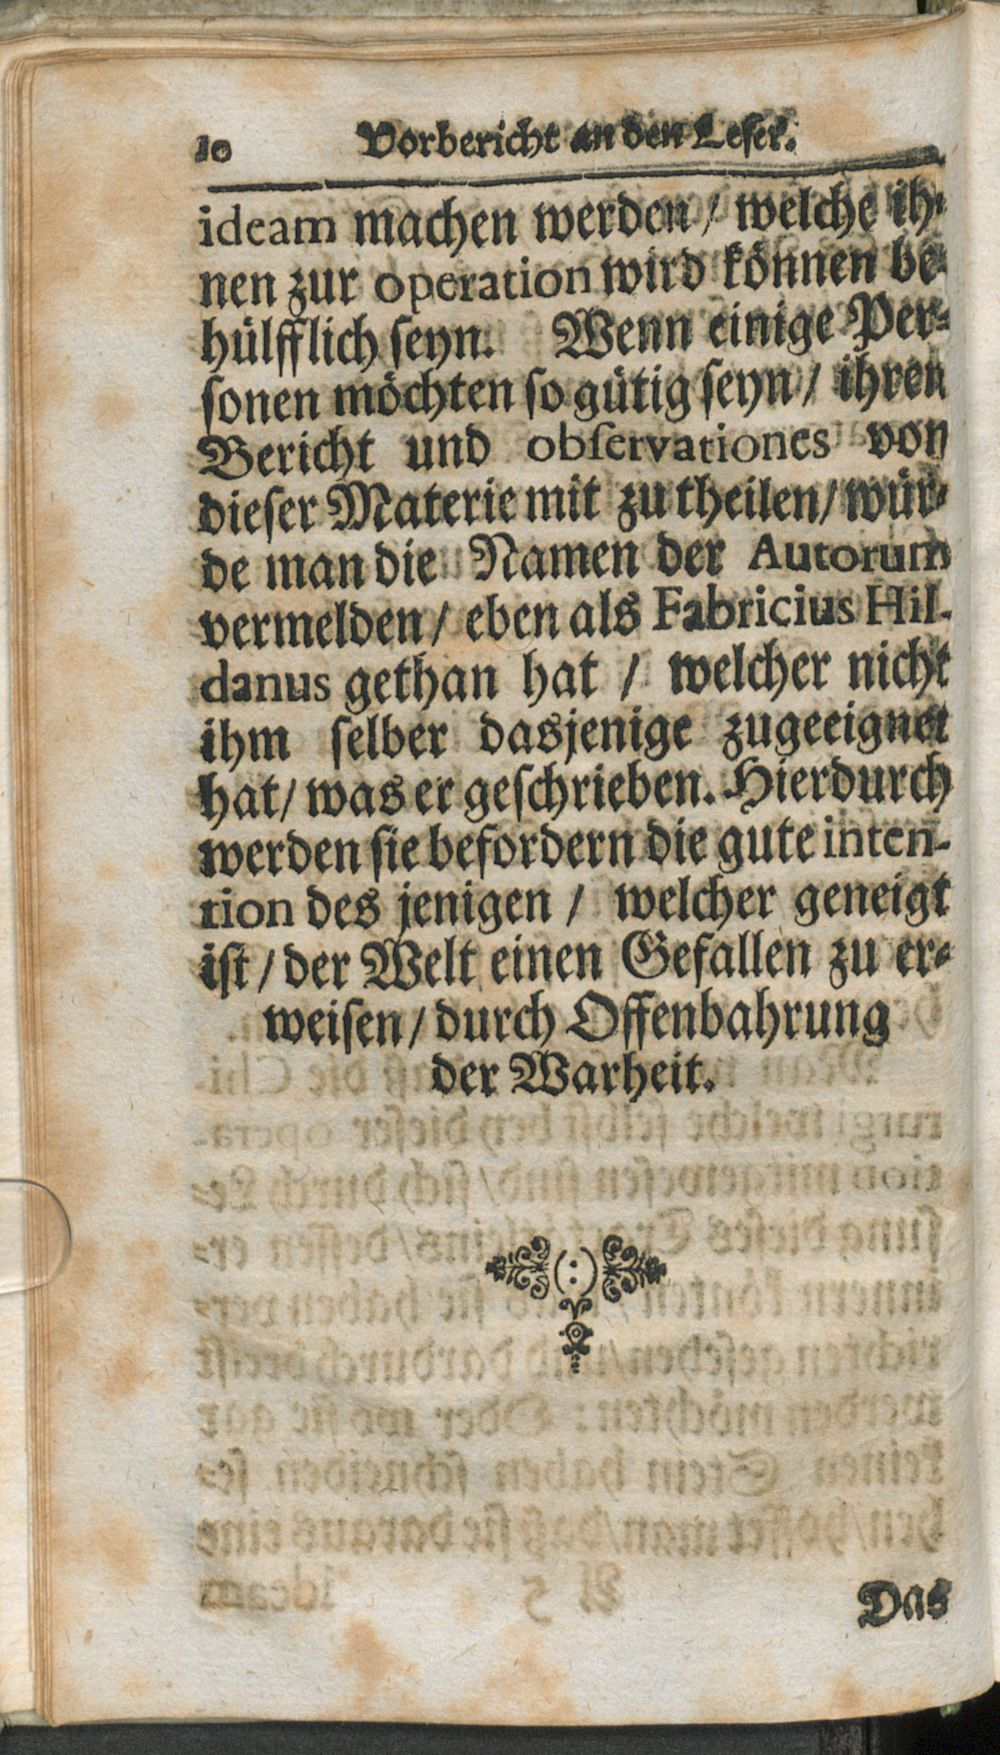 10 Vorbericht an den Leser.
ideam machen werden / welche ih-
nen zur operation wird können be-
hülfflich seyn. Wenn einige Per-
sonen möchten so gütig seyn / ihren
Bericht und observationes von
dieser Materie mit zu theilen / wür-
de man die Namen der Autorum
vermelden / eben als Fabricius Hil-
danus gethan hat / welcher nicht
ihm selber dasjenige zugeeignet
hat / was er geschrieben. Hierdurch
werden sie befordern die gute inten-
tion des jenigen / welcher geneigt
ist / der Welt einen Gefallen zu er-
weisen / durch Offenbahrung
der Warheit.
(:)
Das